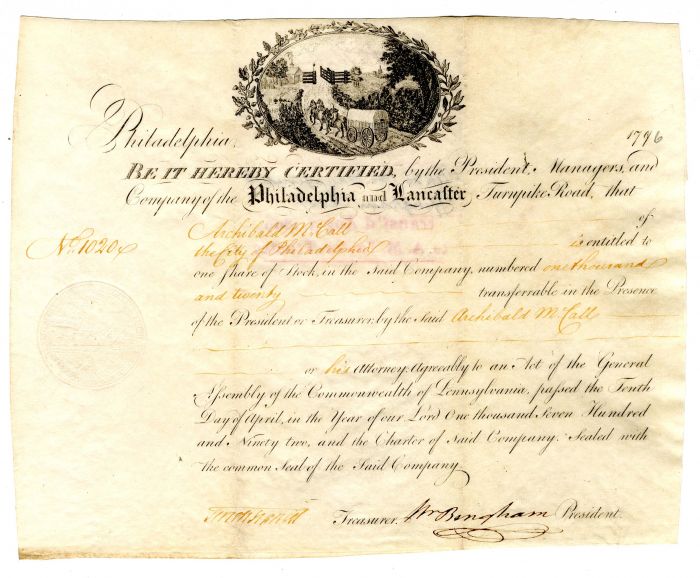 Philadelphia, 1796
BE IT HEREBY CERTIFIED, by the President, Managers, and
Company of the Philadelphia and Lancaster Turnpike Road, that
Archibald McCall of
No. 1020 the City of Philadelphia is entitled to
one Share of Stock, in the Said Company, numbered one thousand
and twenty transferrable in the Presence
of the President or Treasurer, by the Said Archibald McCall
or his Attorney, Agreeably to an Act of the General
Assembly of the Commonwealth of Pennsylvania, passed the Tenth
Day of April, in the Year of our Lord One thousand Seven Hundred
and Ninety two, and the Charter of Said Company. Sealed with
the common Seal of the Said Company
Treasurer. Wm Bingham President.